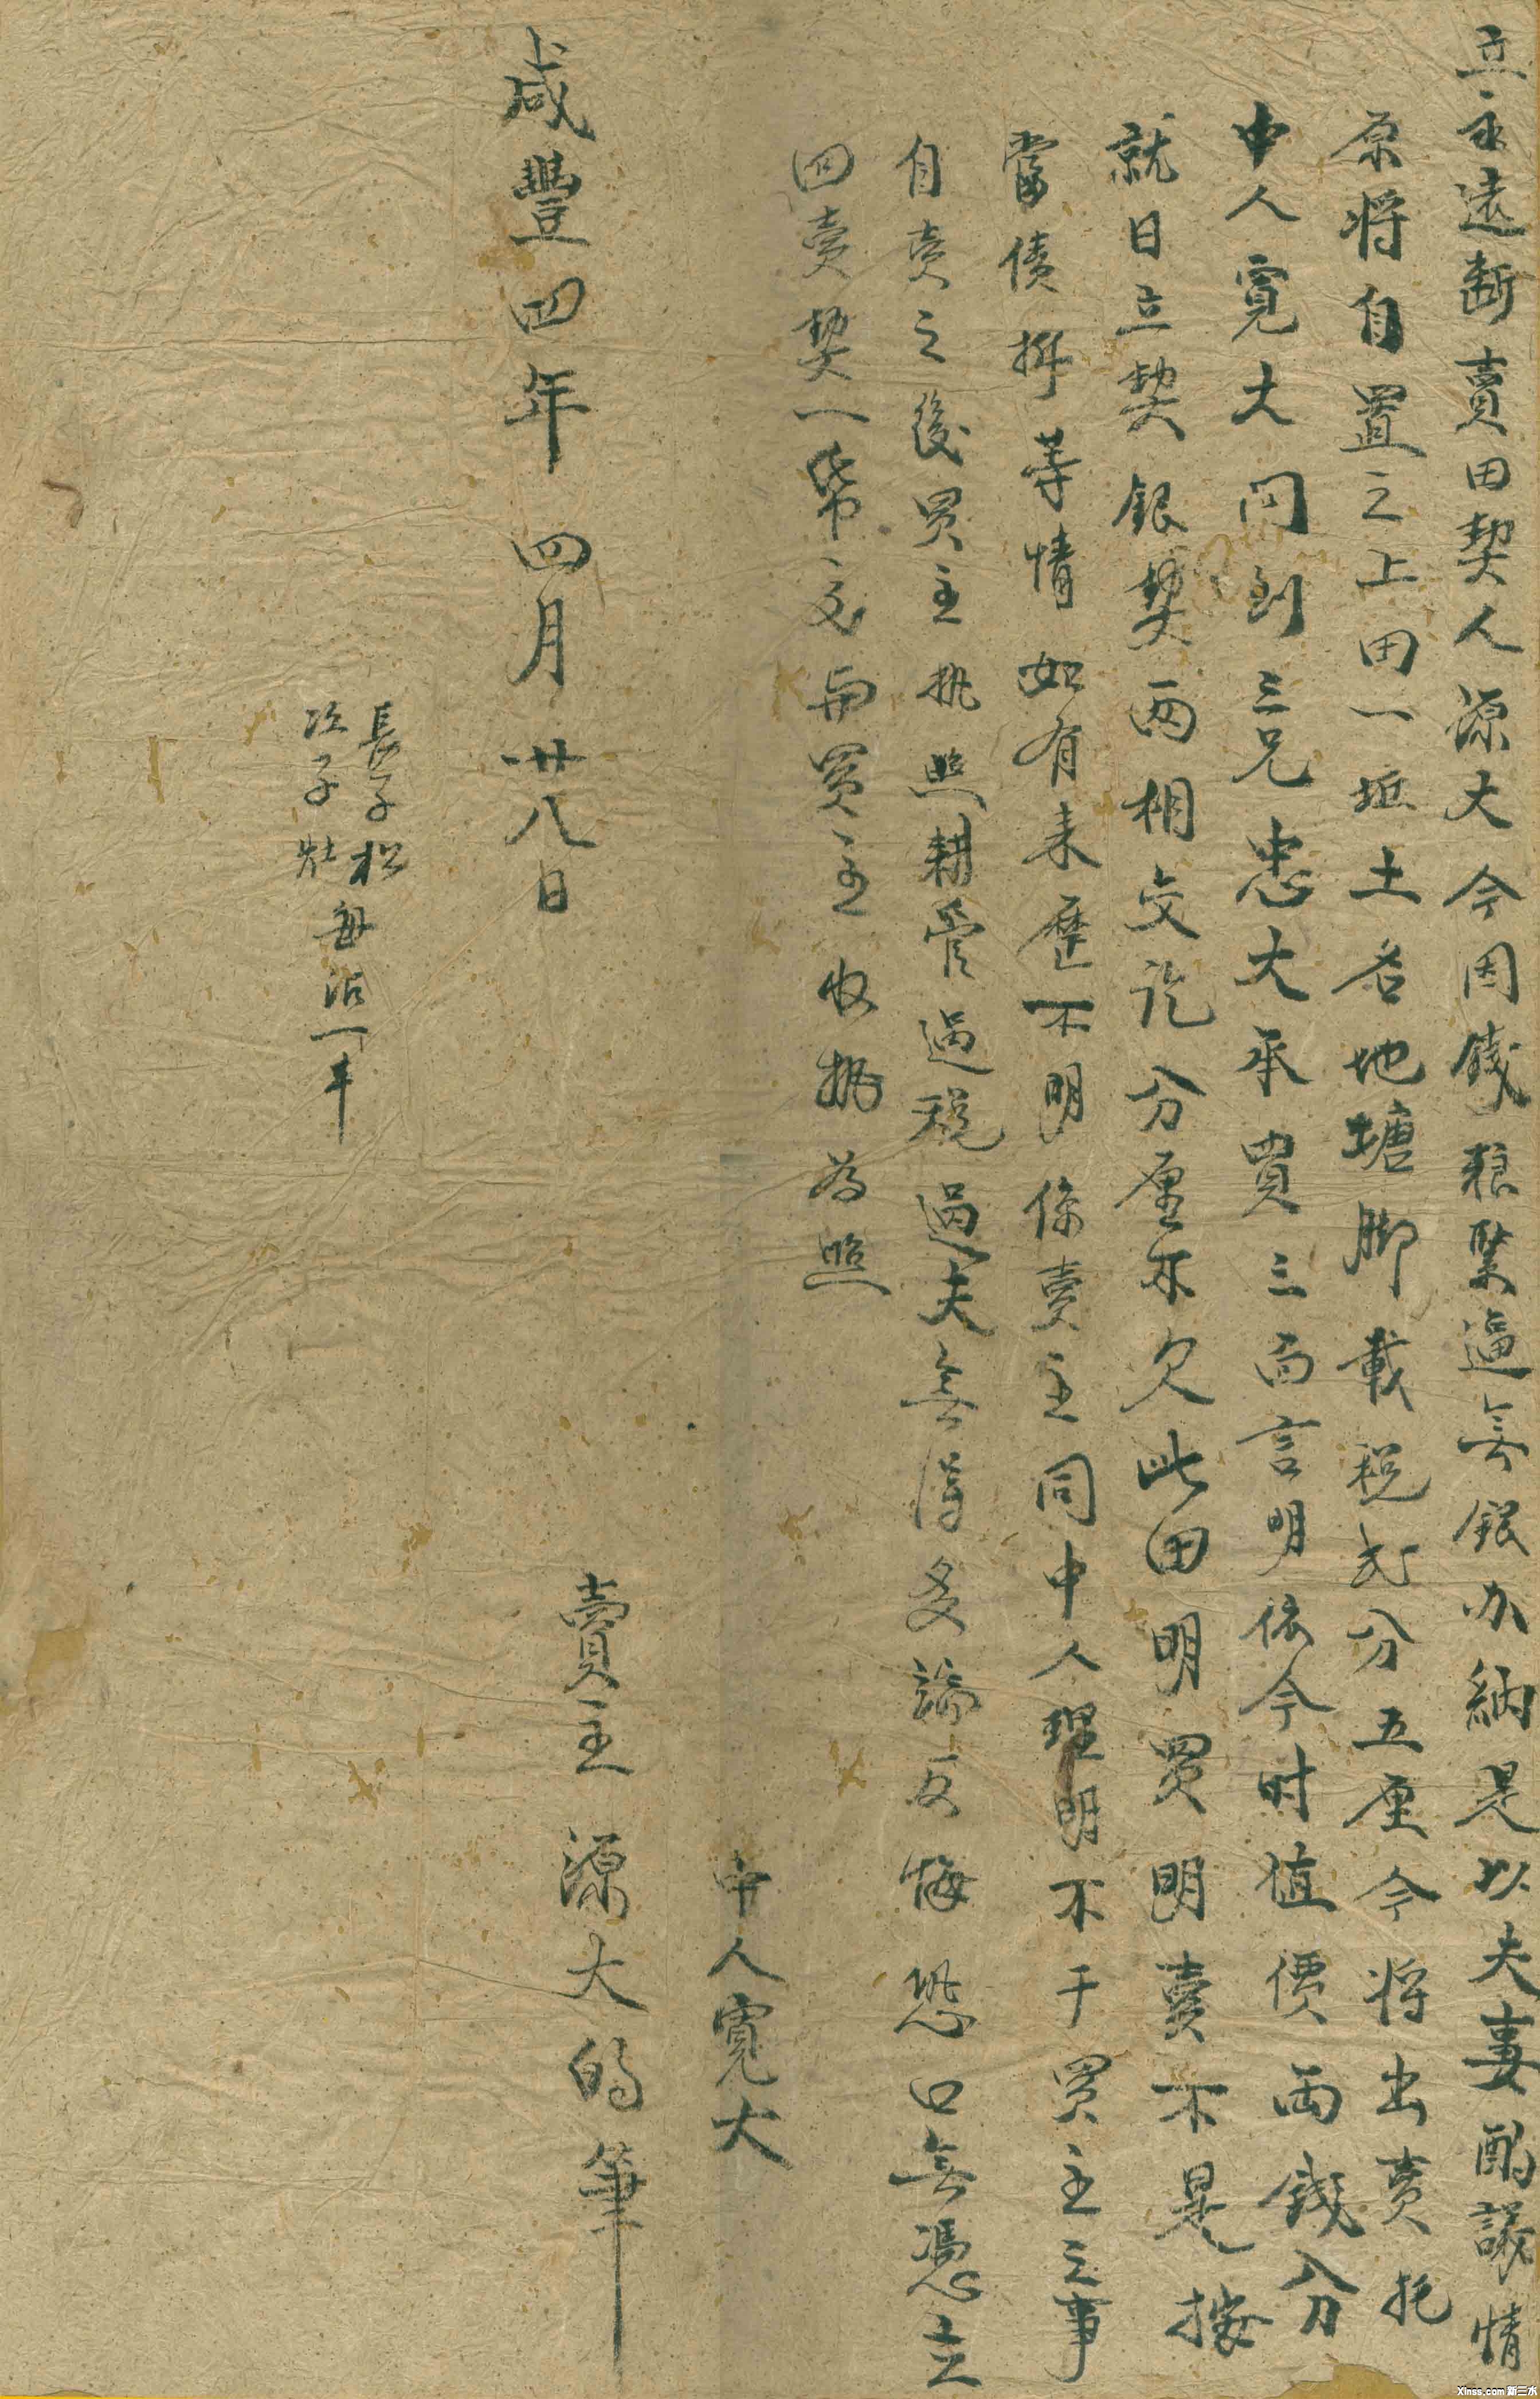 立永遠斷賣田契人源大今因錢粮緊逼無銀办納是以夫妻酌議情
原将自置之上田一坵土名地塘脚載税弍分五厘今将出賣托
中人寬大问到三兄忠大承買三面言明依今时值價両錢分
就日立契銀契两相交訖分厘不欠此田明買明賣不是按
當債折等情如有来歷不明係賣主同中人理明不干買主之事
自賣之後買主执照耕管過税過夫無得多論反悔恐口無憑立
田賣契一帋交與買主收执為照
中人寬大
賣主源大的筆
咸豐四年四月廿八日
長子松
次子
每沾一半
Xinss.com 新三水